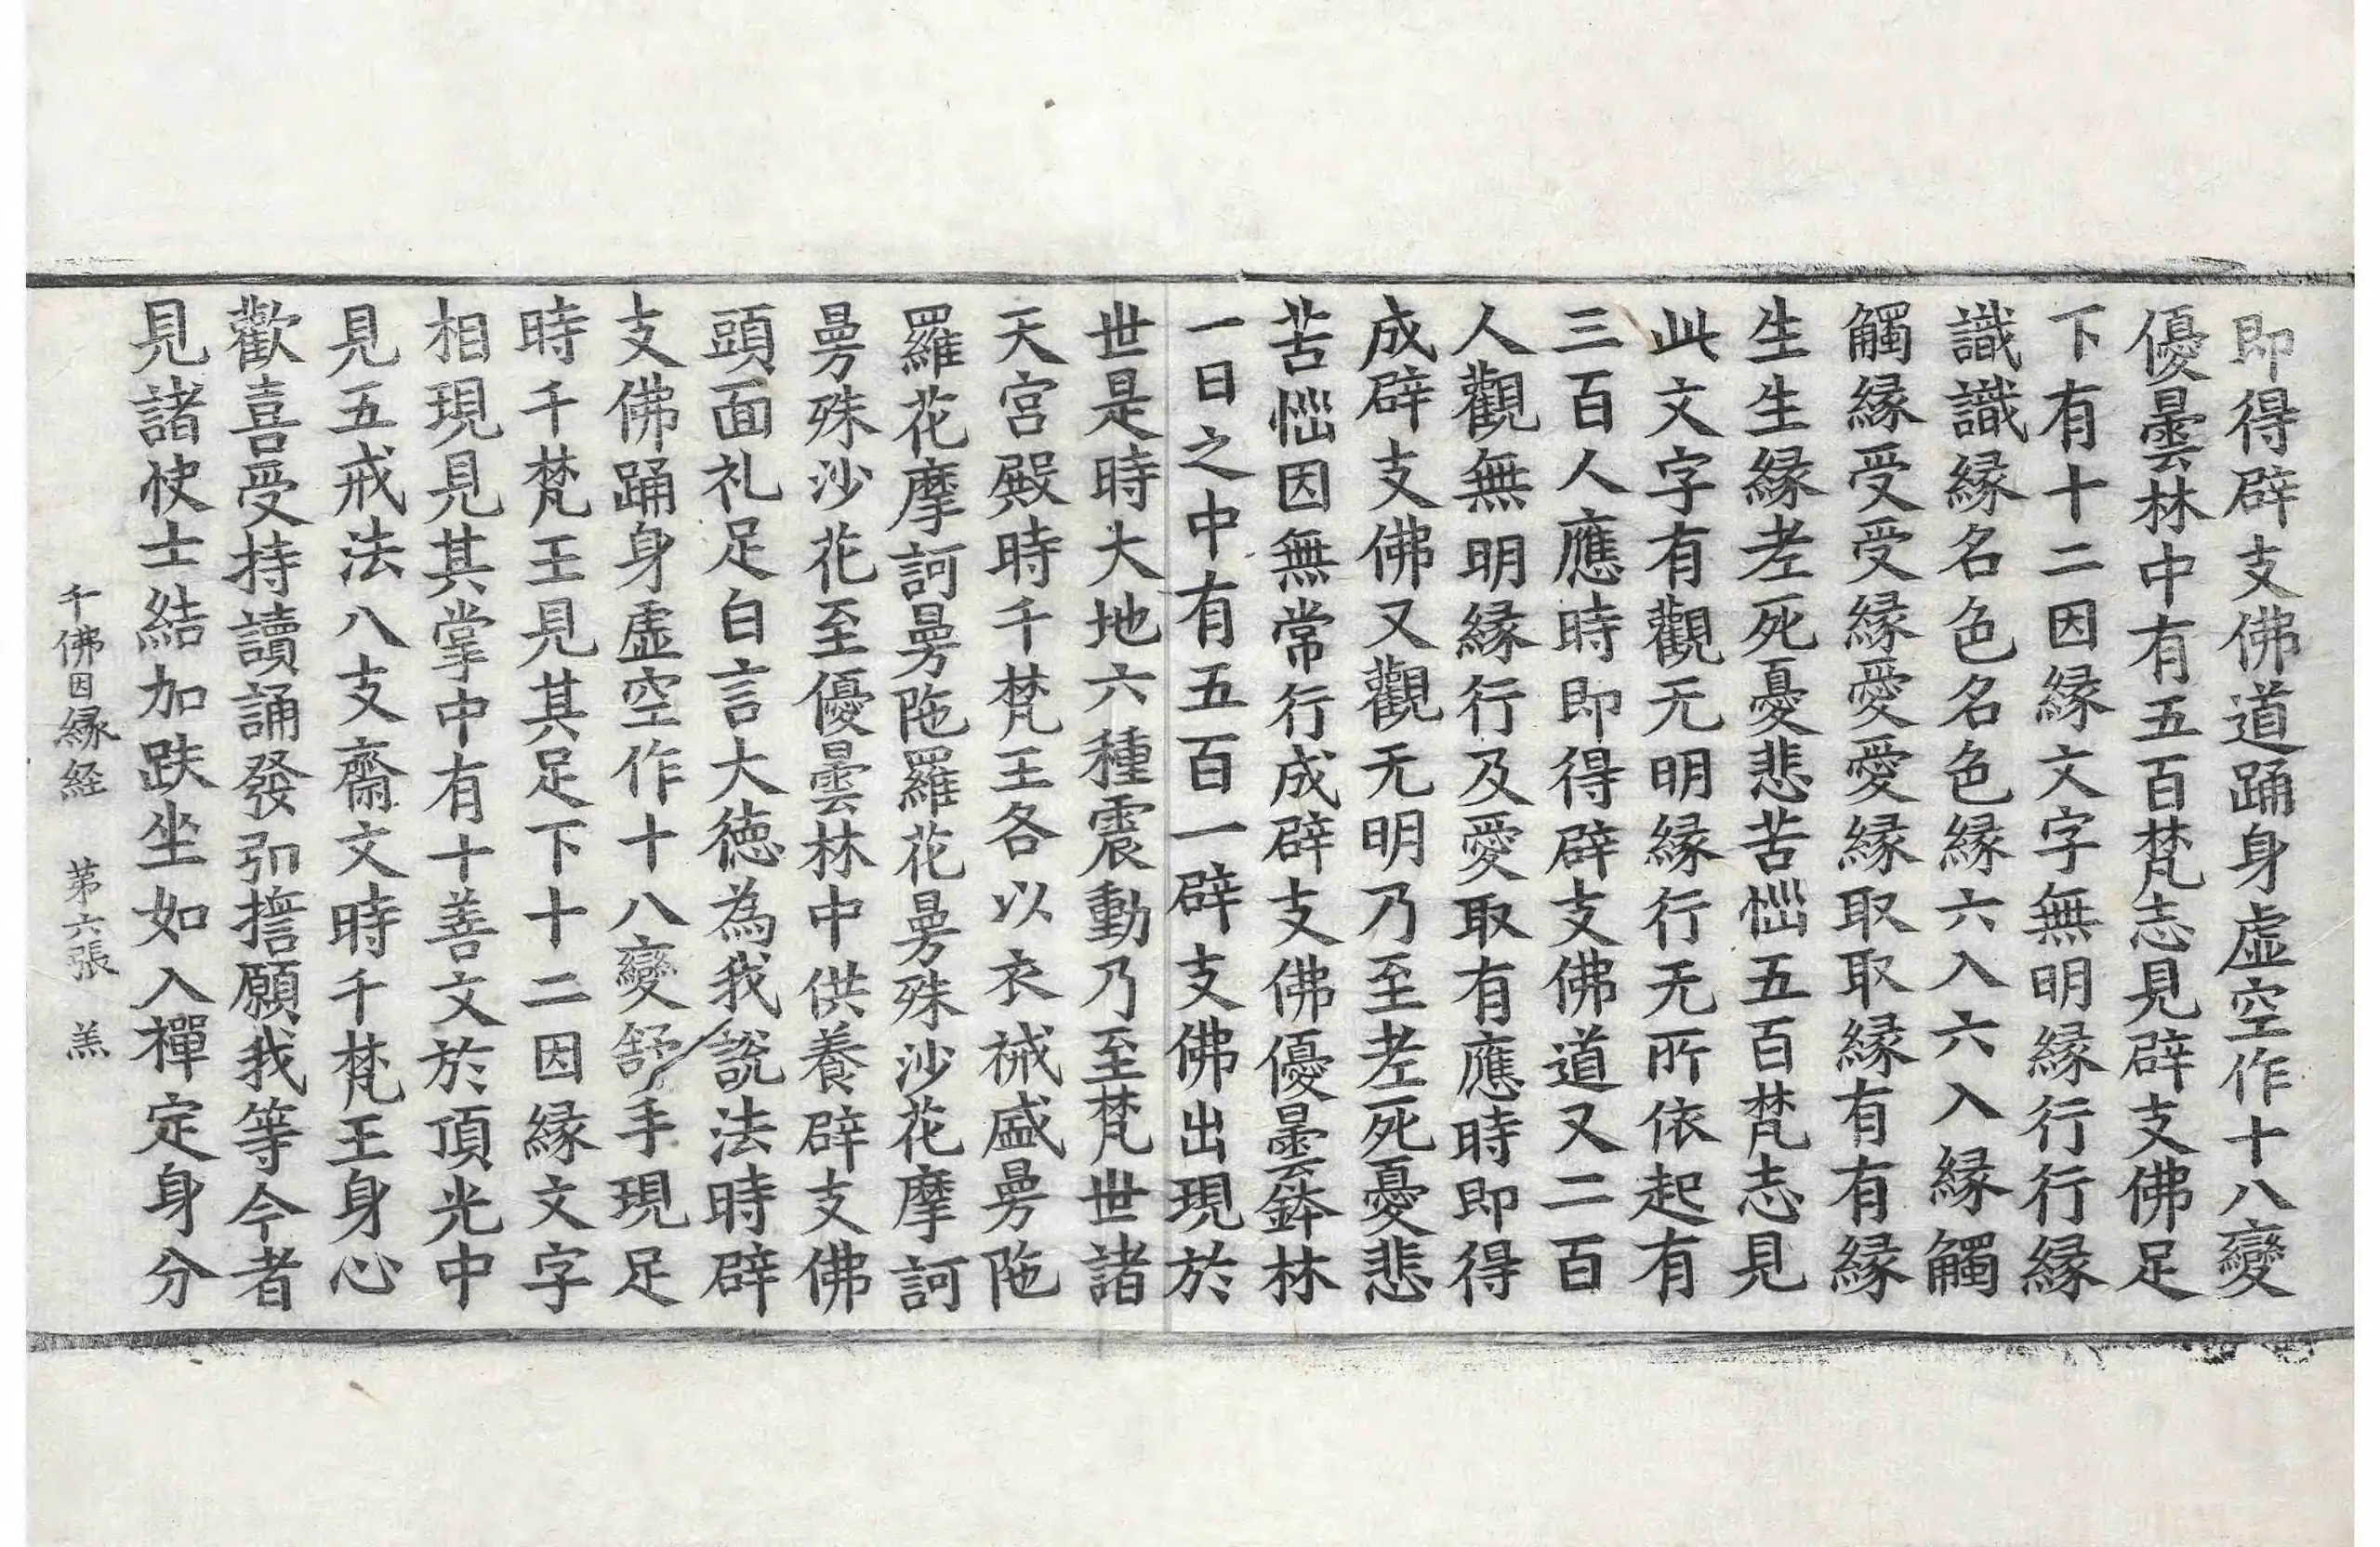 即得辟支佛道踊身虛空作十八變
優曇林中有五百梵志見辟支佛足
下有十二因縁文字無明縁行行縁
識識縁名色名色縁六入六入縁觸
觸縁受受縁愛愛縁取取縁有有縁
生生縁老死憂悲苦惱五百梵志見
此文字有觀无明縁行无所依起有
三百人應時即得辟支佛道又二百
人觀無明縁行及愛取有應時即得
成辟支佛又觀无明乃至老死憂悲
苦惱因無常行成辟支佛優曇鉢林
一日之中有五百一辟支佛出現於
世是時大地六種震動乃至梵世諸
天宮殿時千梵王各以衣裓盛曼陁
羅花摩訶曼陁羅花曼殊沙花摩訶
曼殊沙花至優曇林中供養辟支佛
頭面礼足白言大德為我說法時辟
支佛踊身虛空作十八變舒手現足
時千梵王見其足下十二因縁文字
相現見其掌中有十善文於頂光中
見五戒法八支齋文時千梵王身心
歡喜受持讀誦發弘擔願我等今者
見諸快士結加趺坐如入禪定身分
千佛因縁経 苐六張 羔